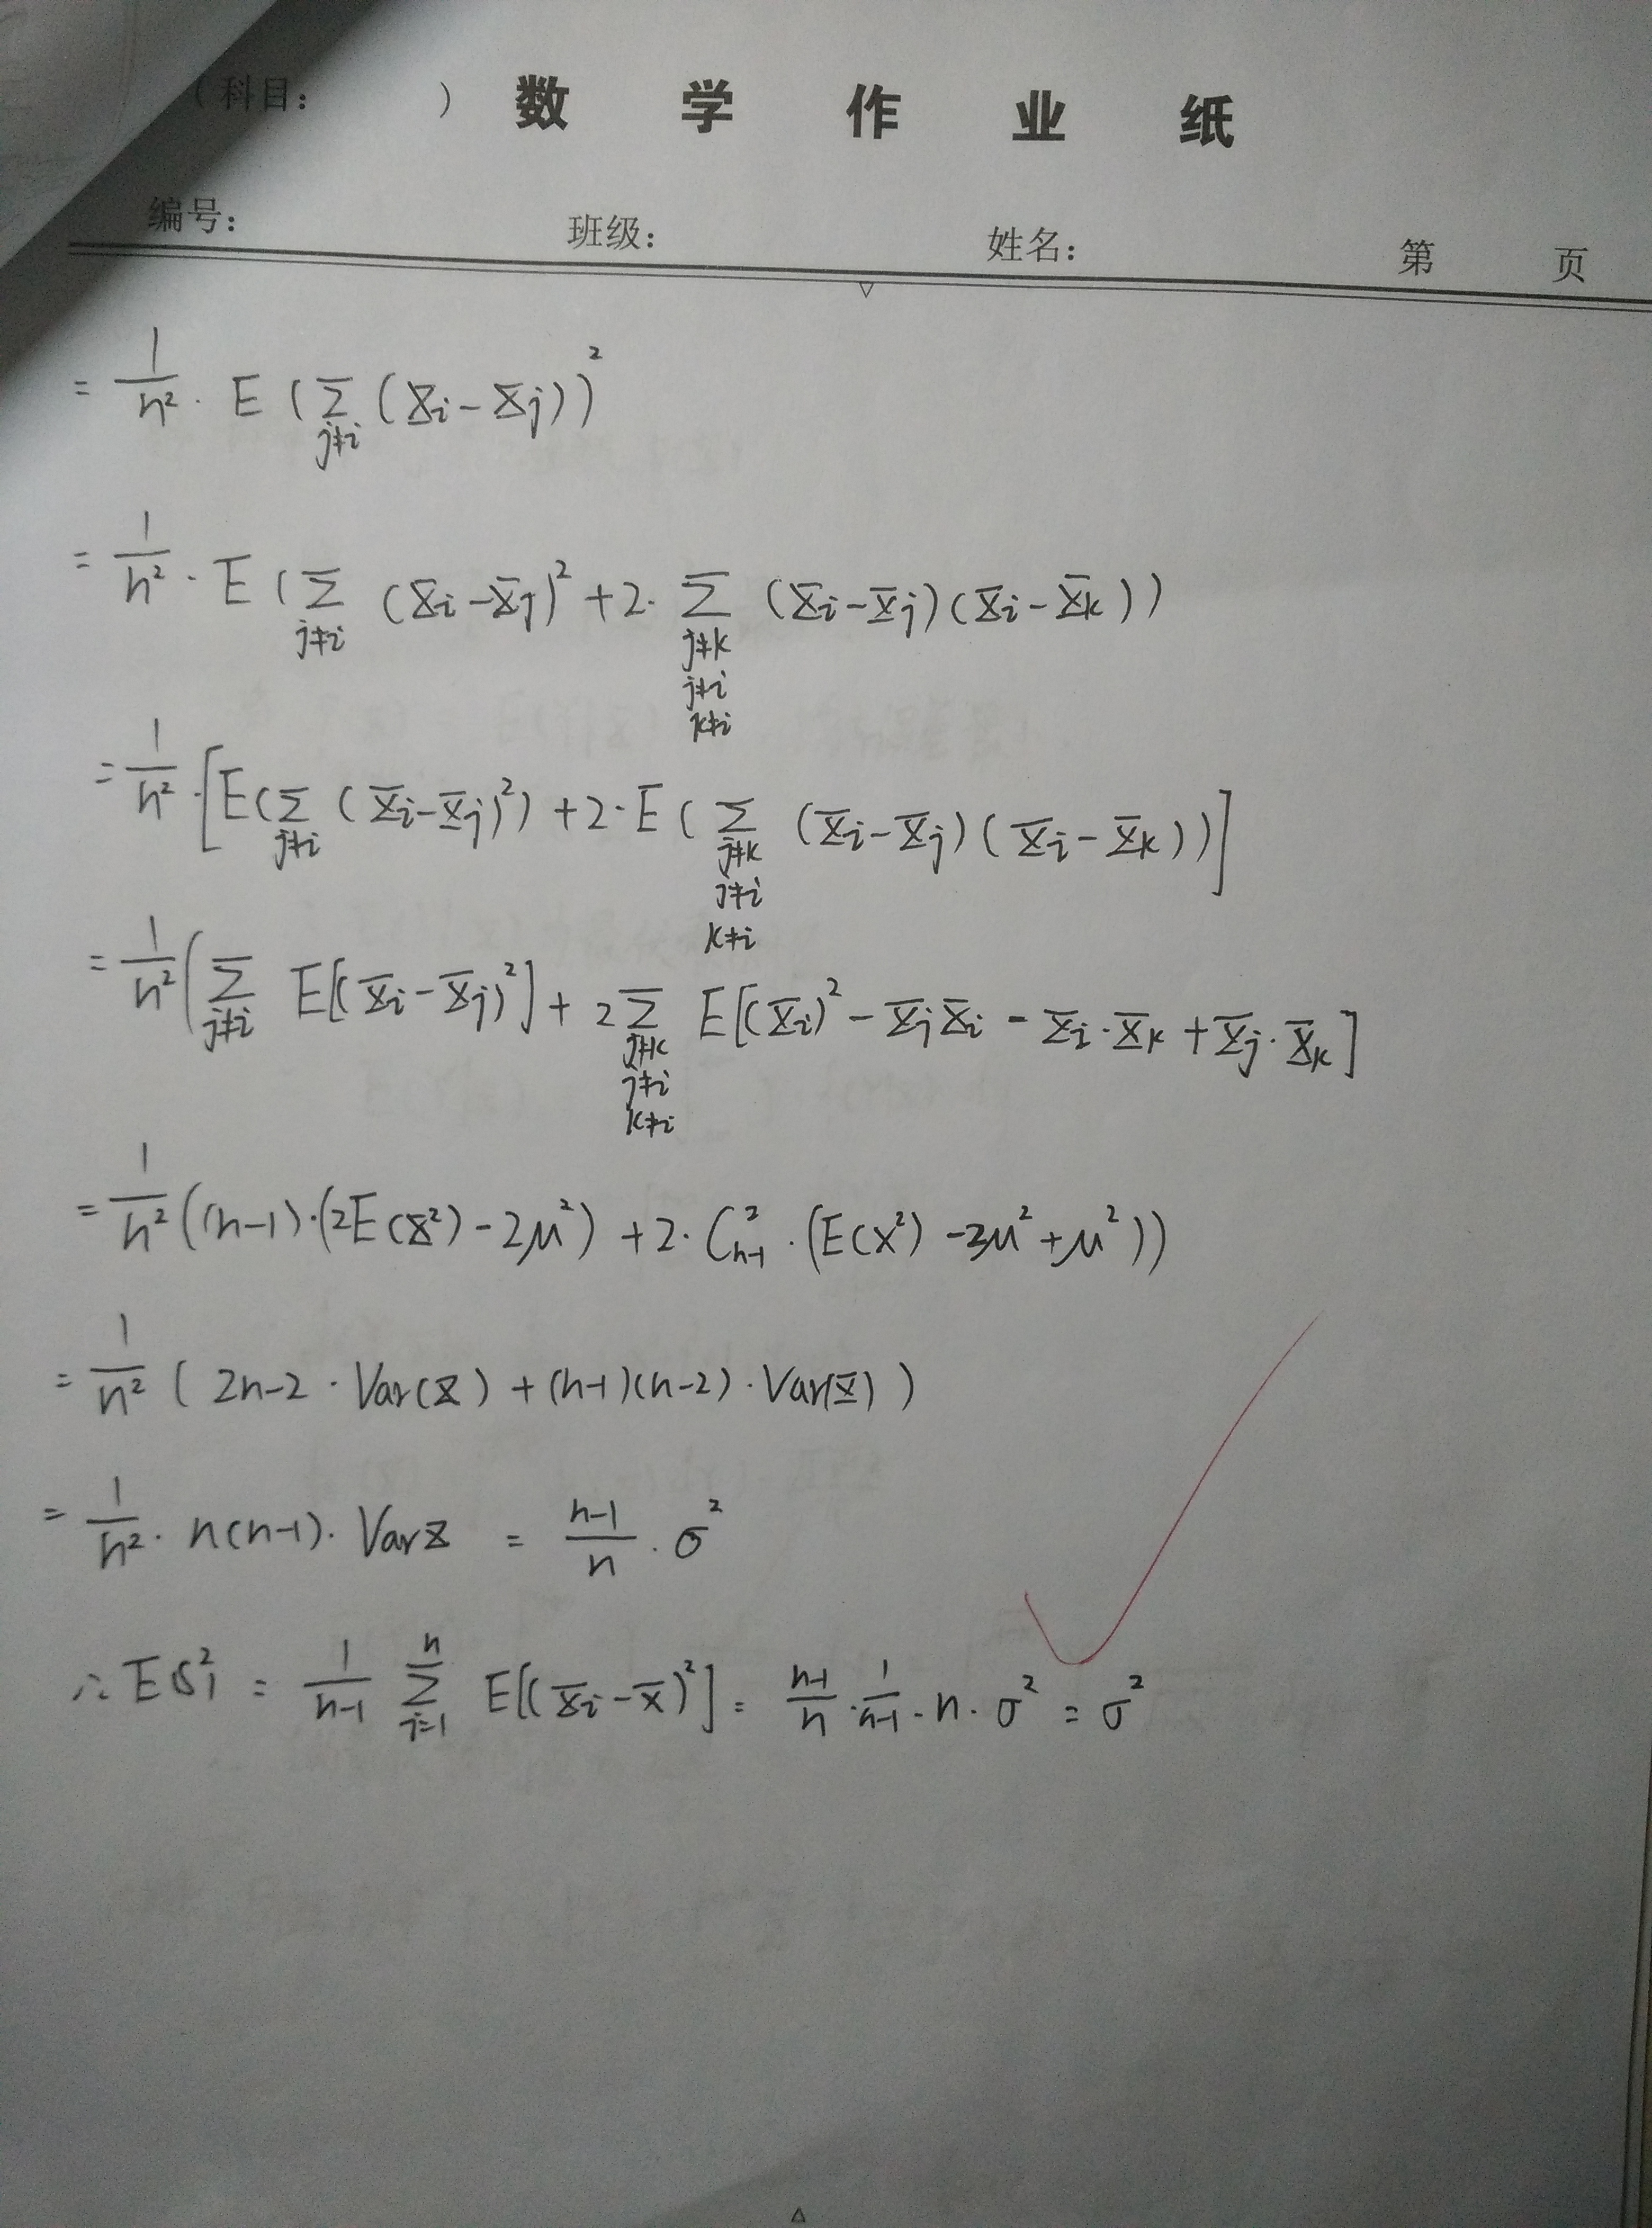 (科目: ) 数 学 作 业 纸
编号: 班级: 姓名: 第 页
= 1/n² · E ( Σ_{j≠i} (X_i - X_j) )²
= 1/n² · E ( Σ_{j≠i} (X_i - X_j)² + 2 · Σ_{j≠k, j≠i, k≠i} (X_i - X_j)(X_i - X_k) )
= 1/n² · [ E( Σ_{j≠i} (X_i - X_j)² ) + 2 · E ( Σ_{j≠k, j≠i, k≠i} (X_i - X_j)(X_i - X_k) ) ]
= 1/n² ( Σ_{j≠i} E[(X_i - X_j)²] + 2 Σ_{j≠k, j≠i, k≠i} E[(X_i)² - X_j X_i - X_i · X_k + X_j · X_k]
= 1/n² ( (n-1) · (2E(X²) - 2μ²) + 2 · C²_{n-1} · (E(X²) - 2μ² + μ²) )
= 1/n² ( 2n-2 · Var(X) + (n-1)(n-2) · Var(X) )
= 1/n² · n(n-1) · Var X = (n-1)/n · σ²
∴ E S₁² = 1/(n-1) Σ_{i=1}^{n} E[(X_i - X̄)²] = (n-1)/n · 1/(n-1) · n · σ² = σ²